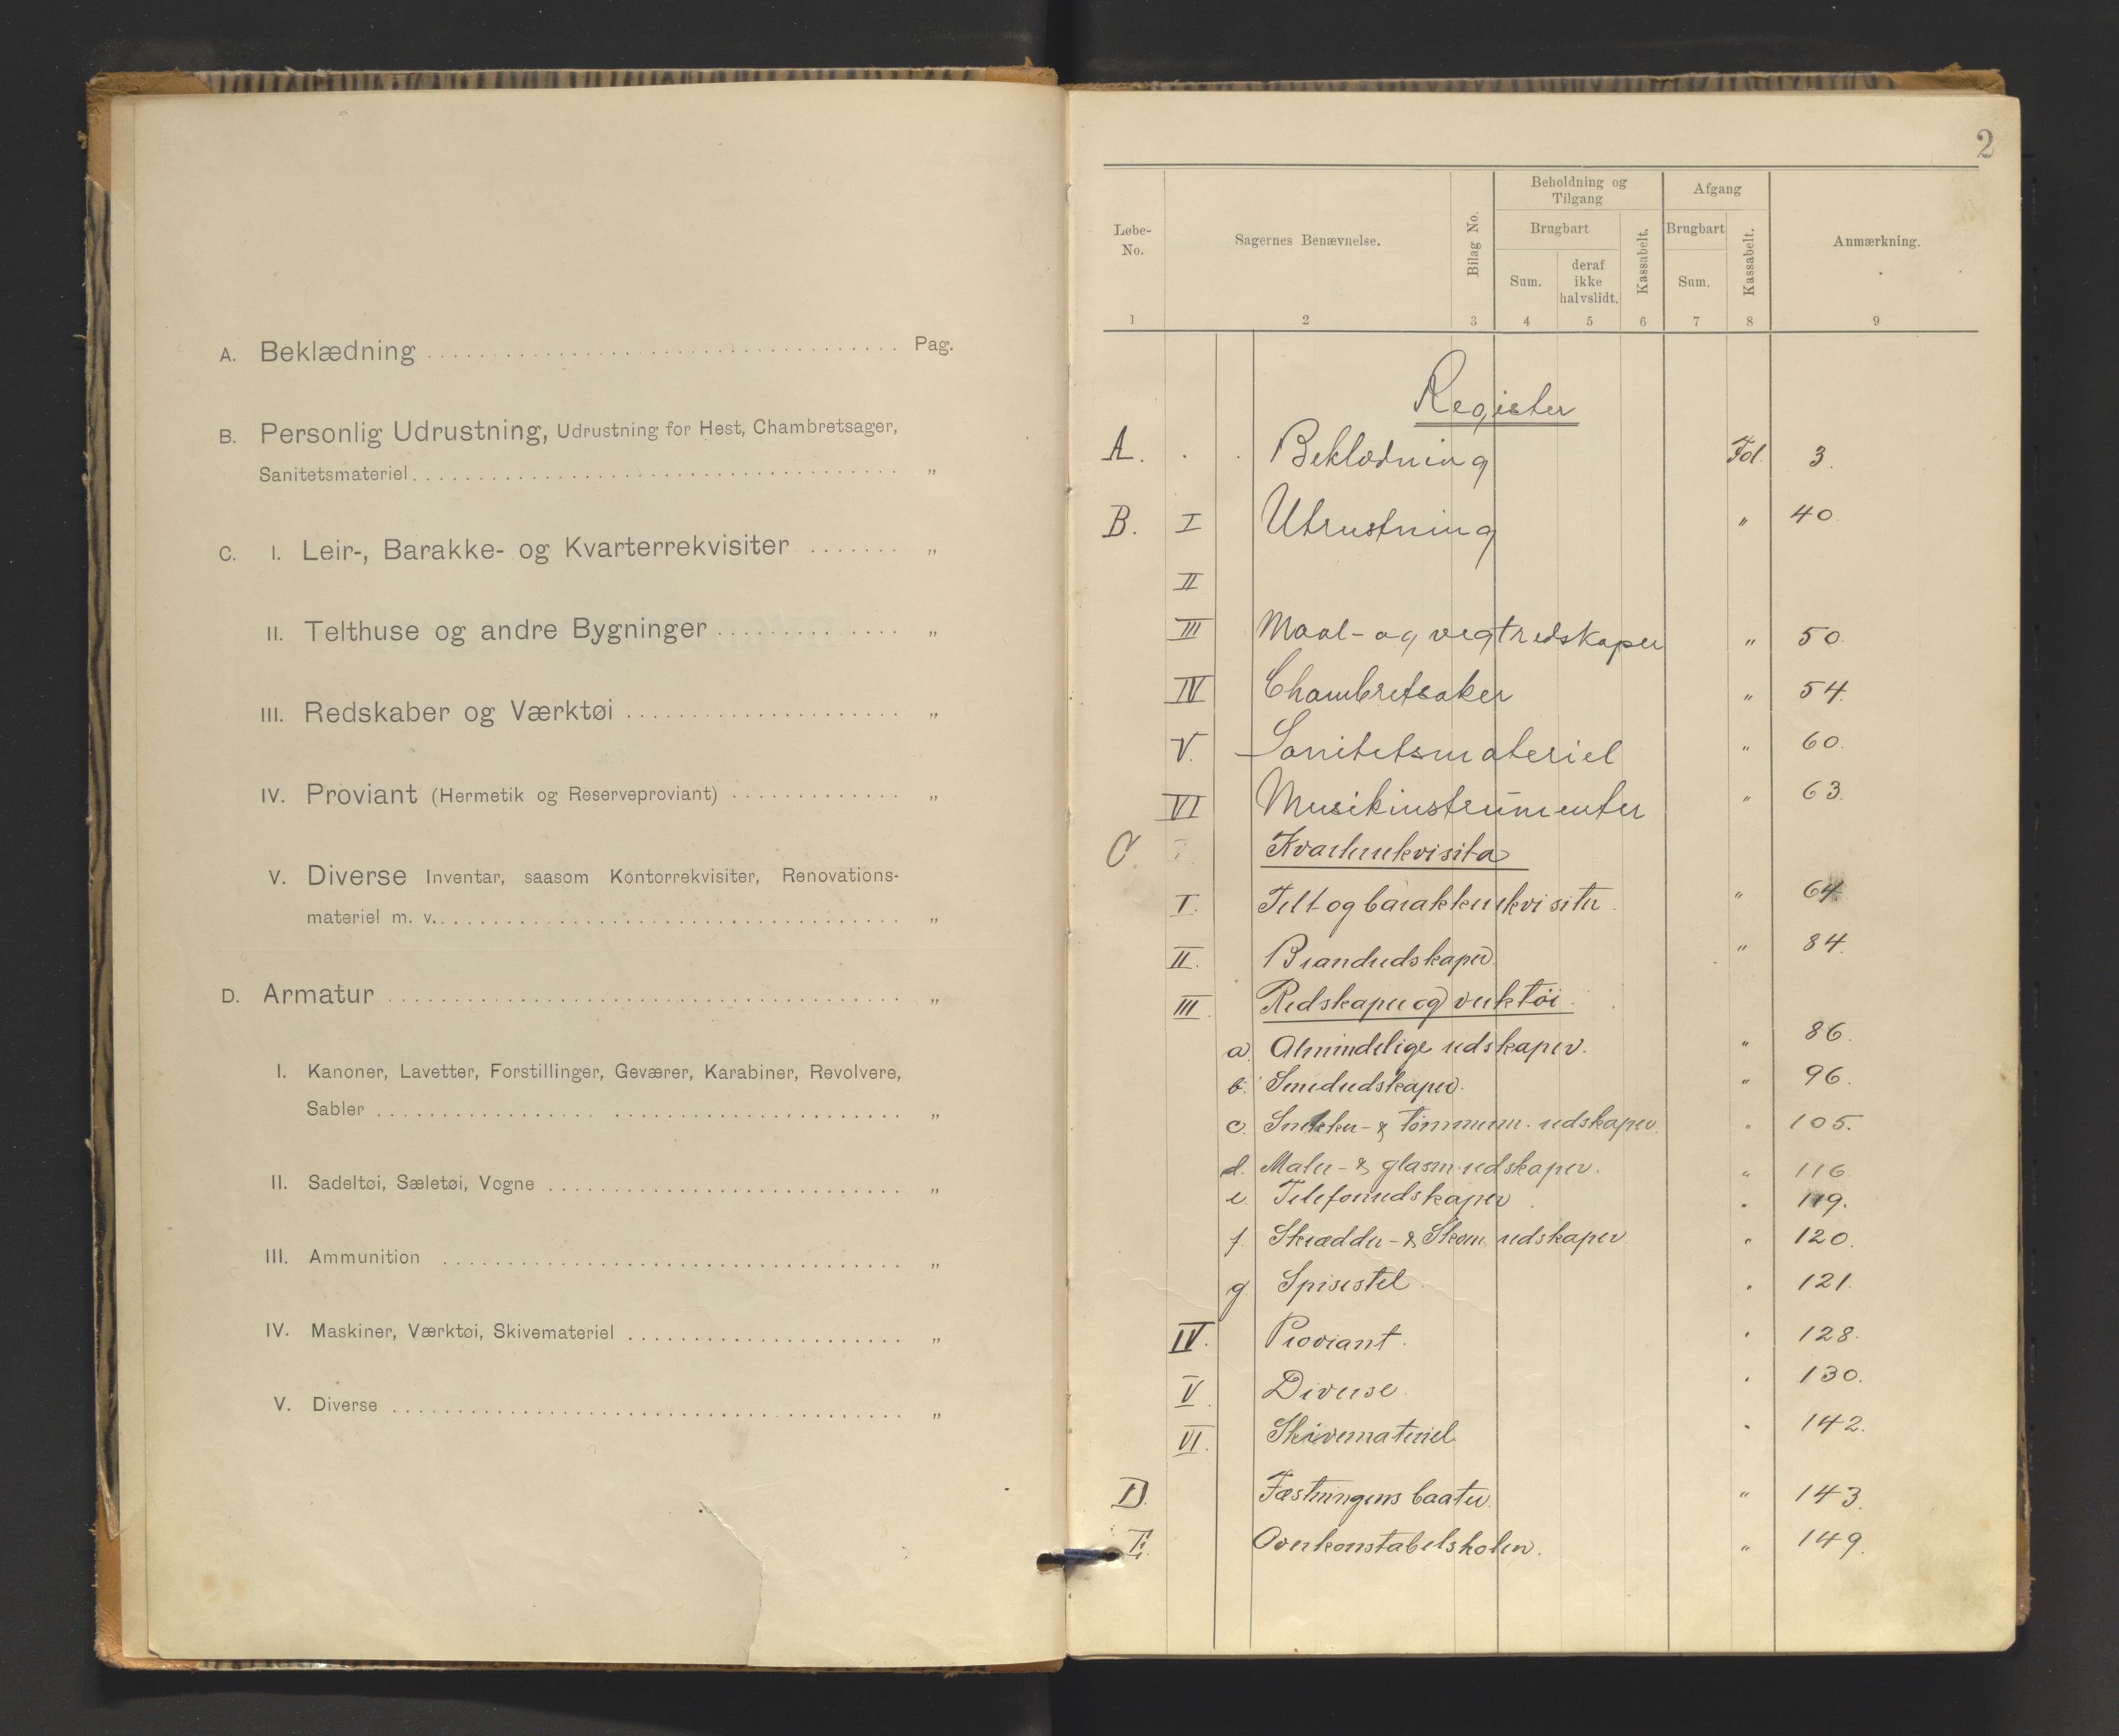 A. Beklædning Pag.
B. Personlig Udrustning, Udrustning for Hest, Chambretsager,
Sanitetsmateriel „
C. I. Leir-, Barakke- og Kvarterrekvisiter „
II. Telthuse og andre Bygninger „
III. Redskaber og Værktøi „
IV. Proviant (Hermetik og Reserveproviant) „
V. Diverse Inventar, saasom Kontorrekvisiter, Renovations-
materiel m. v. „
D. Armatur „
I. Kanoner, Lavetter, Forstillinger, Geværer, Karabiner, Revolvere,
Sabler „
II. Sadeltøi, Sæletøi, Vogne „
III. Ammunition „
IV. Maskiner, Værktøi, Skivemateriel „
V. Diverse „
2
Løbe-
No.
Sagernes Benævnelse.
Bilag No.
Beholdning og
Tilgang
Brugbart
Sum.
deraf
ikke
halvslidt.
Kassabelt.
Afgang
Brugbart
Sum.
Kassabelt.
Anmærkning.
1 2 3 4 5 6 7 8 9
Register
A. Beklædning Fol. 3.
B. I Utrustning " 40
II
III Maal- og vegtredskaper " 50
IV Chambretsaker " 54.
V. Sanitetsmateriel " 60.
VI Musikinstrumenter " 63
C. I. Kvarterrekvisita
I. Telt og barakkerekvisiter " 64
II. Brandredskaper. " 84.
III. Redskaper og verktøi.
a. Almindelige redskaper. " 86.
b. Smedredskaper. " 96.
c. Snekker- & tømmerm. redskaper. " 105.
d. Maler- & glasm. redskaper. " 116
e. Telefonredskaper " 119.
f. Skrædder- & Skom. redskaper " 120.
g. Spisestel " 121.
IV. Proviant. " 128.
V. Diverse. " 130.
VI. Skivemateriel " 142.
D. Fæstningens baater. " 143.
E. Overkonstabelskolen. " 149.